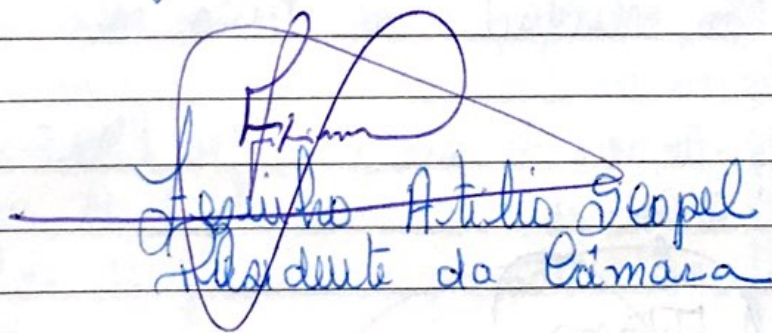 Jesuino Atilio Scopel
Presidente da Câmara